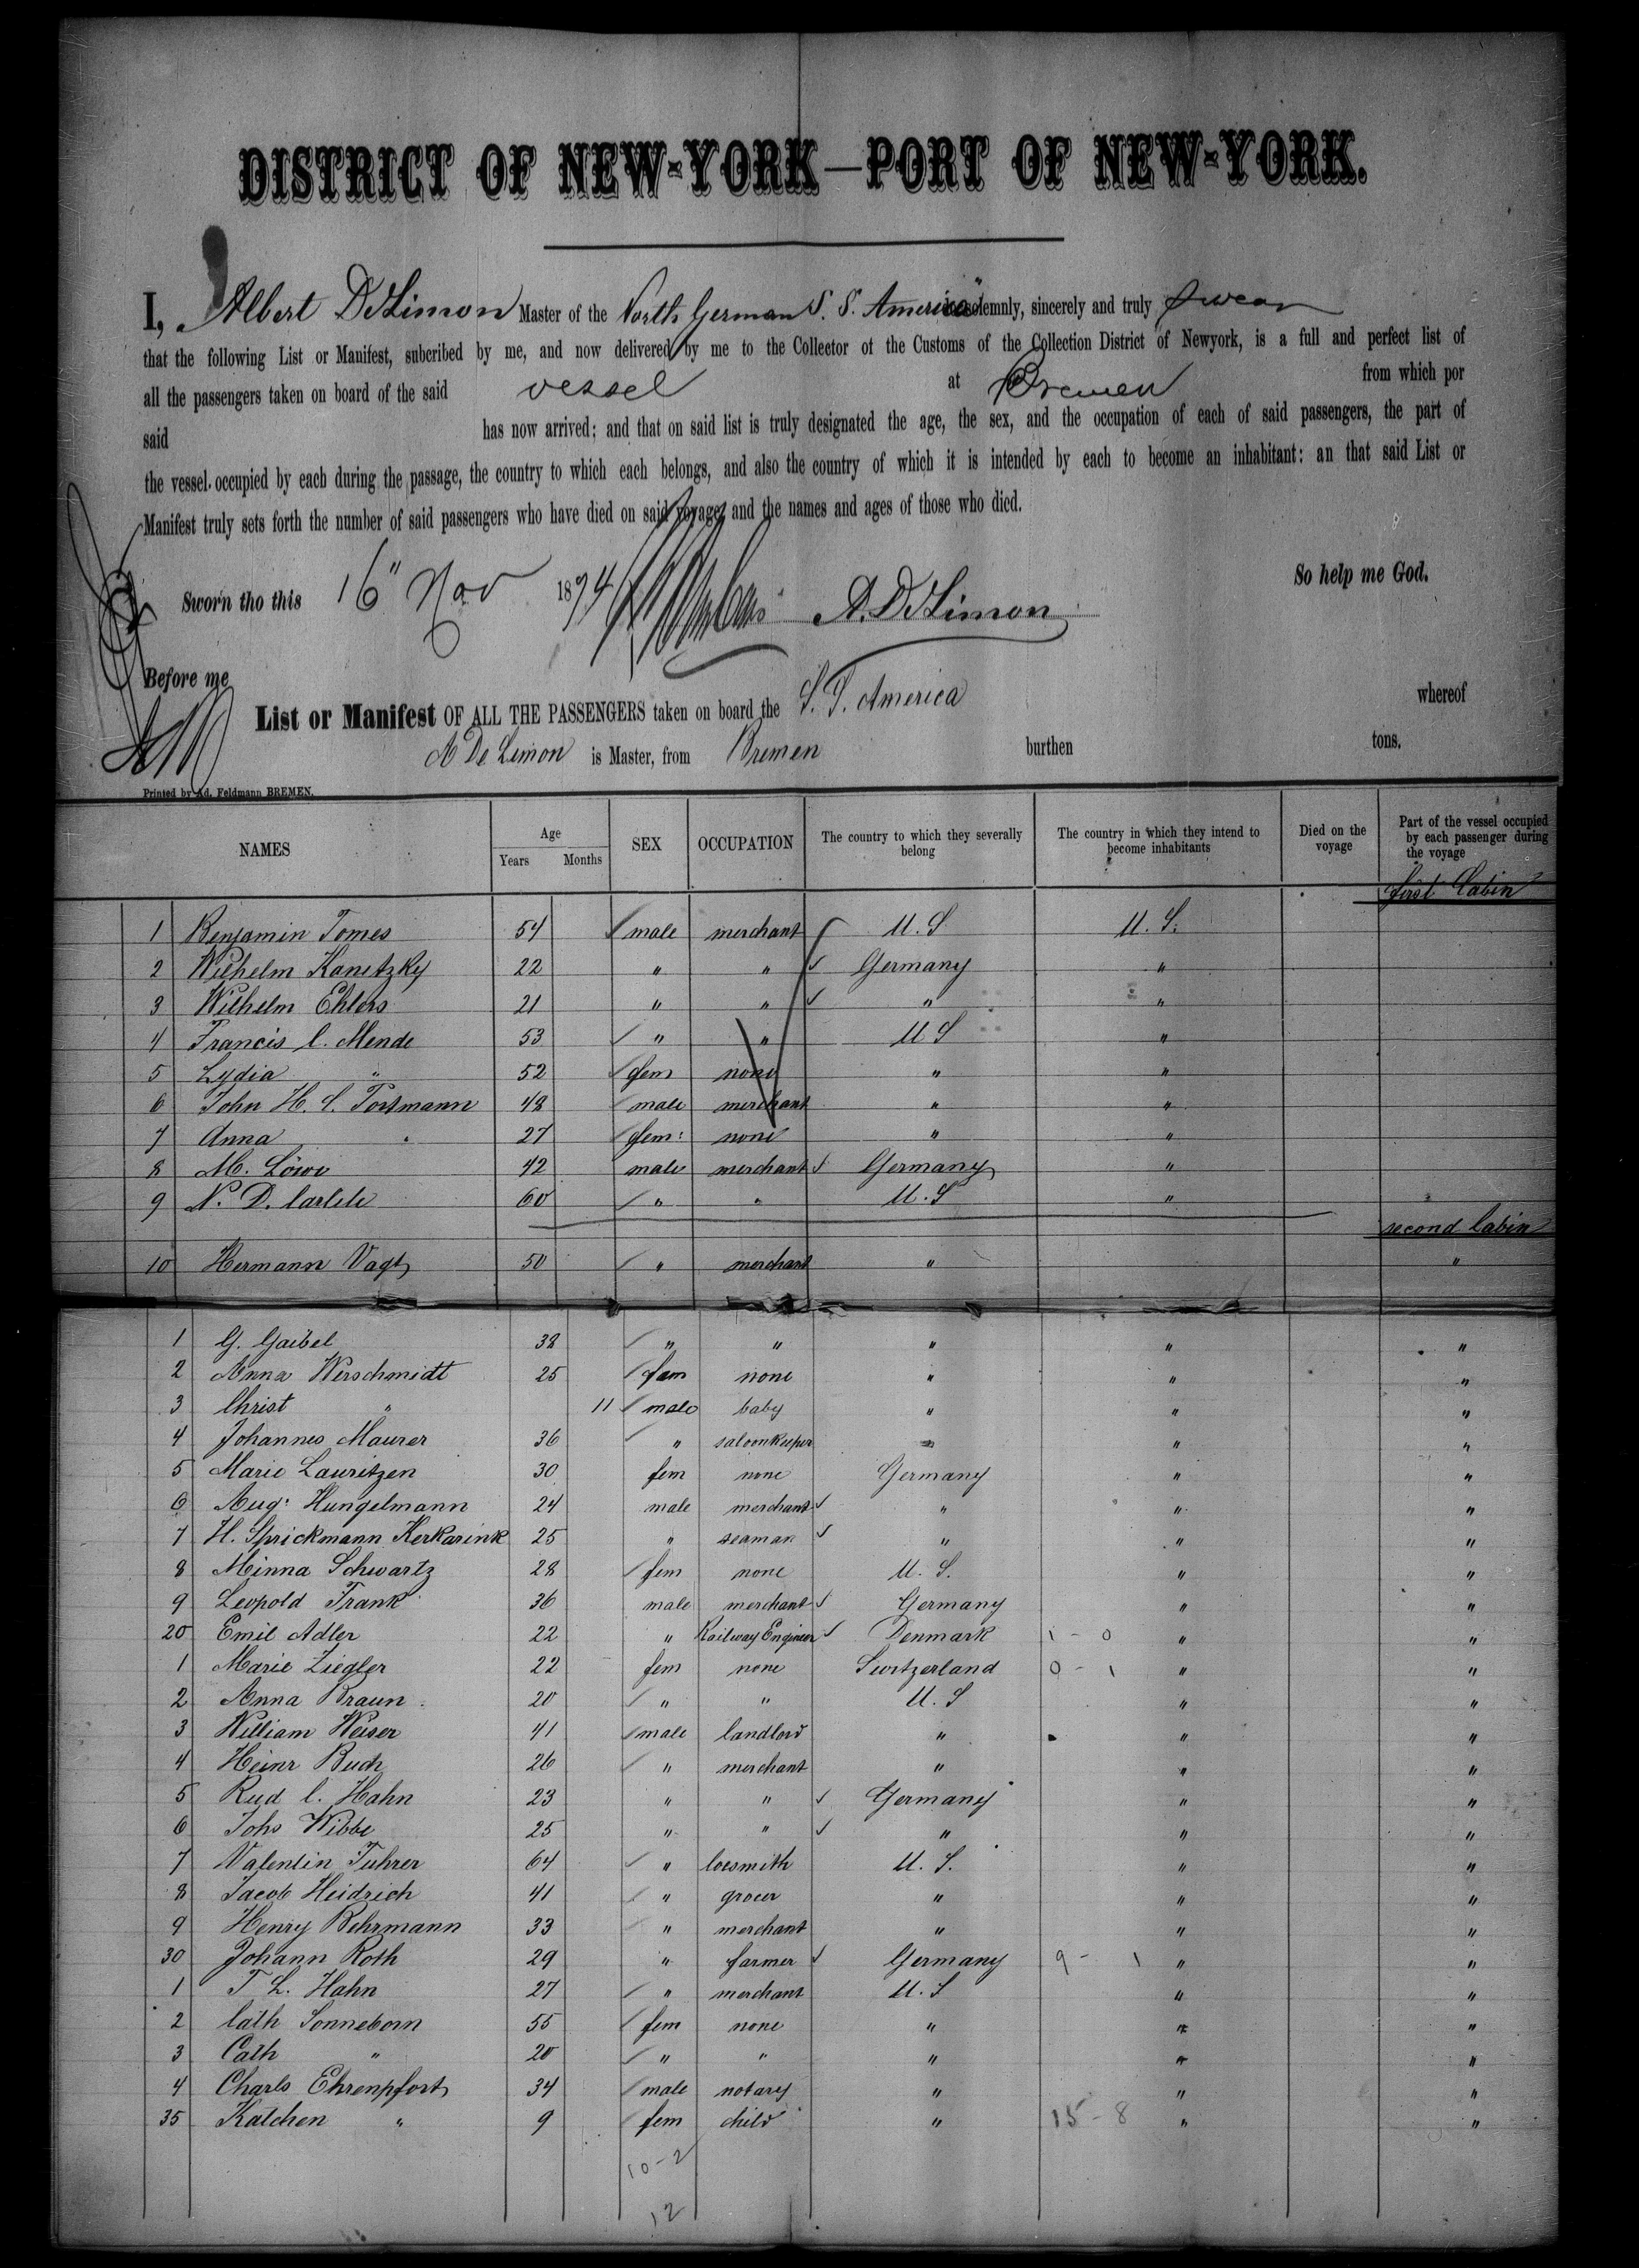 DISTRICT OF NEW-YORK—PORT OF NEW-YORK.
I, Albert DeLimon Master of the North German S. S. America solemnly, sincerely and truly swear
that the following List or Manifest, subcribed by me, and now delivered by me to the Colleetor ot the Customs of the Collection District of Newyork, is a full and perfect list of
all the passengers taken on board of the said vessel at Bremen from which por
said has now arrived; and that on said list is truly designated the age, the sex, and the occupation of each of said passengers, the part of
the vessel occupied by each during the passage, the country to which each belongs, and also the country of which it is intended by each to become an inhabitant: an that said List or
Manifest truly sets forth the number of said passengers who have died on said voyage, and the names and ages of those who died.
So help me God.
Sworn tho this 16" Nov 1874 A. DeLimon
Before me
List or Manifest OF ALL THE PASSENGERS taken on board the S. S. America whereof
A De Limon is Master, from Bremen burthen tons,
Printed by Ad. Feldmann BREMEN.
NAMES Age Years Months SEX OCCUPATION The country to which they severally belong The country in which they intend to become inhabitants Died on the voyage Part of the vessel occupied by each passenger during the voyage
first Cabin
1 Benjamin Tomes 54 male merchant U. S U. S.
2 Wilhelm Kanetzky 22 " " Germany "
3 Wilhelm Ehlers 21 " " " "
4 Francis C. Mende 53 " " U S "
5 Lydia " 52 fem none " "
6 John H. C. Tortmann 48 male merchant " "
7 Anna " 27 fem: none " "
8 M. Löwe 42 male merchant Germany "
9 N. D. Carlile 60 " " U. S "
second Cabin
10 Hermann Vagt 50 " merchant " "
1 G. Gaibel 38 " " " " "
2 Anna Werschmidt 25 fem none " " "
3 Christ " 11 male baby " " "
4 Johannes Maurer 36 " saloonkeeper " " "
5 Marie Lauritzen 30 fem none Germany " "
6 Aug. Hungelmann 24 male merchant " " "
7 H. Sprickmann Kerkarink 25 " seaman " " "
8 Minna Schwartz 28 fem none U. S. " "
9 Leopold Frank 36 male merchant Germany " "
20 Emil Adler 22 " Railway Engineer Denmark 1 - 0 " "
1 Marie Ziegler 22 fem none Switzerland 0 - 1 " "
2 Anna Braun 20 " " U. S " "
3 William Weiser 41 male landlord " " "
4 Heinr Buch 26 " merchant " " "
5 Rud C. Hahn 23 " " Germany " "
6 Johs Wibbe 25 " " " " "
7 Valentin Fuhrer 64 " locsmith U. S. " "
8 Jacob Heidrich 41 " grocer " " "
9 Henry Behrmann 33 " merchant " " "
30 Johann Roth 29 " farmer Germany 9 - 1 " "
1 T L. Hahn 27 " merchant U. S " "
2 Cath Sonneborn 55 fem none " " "
3 Cath " 20 " " " " "
4 Charls Ehrenpfort 34 male notary " " "
35 Katchen " 9 fem child " 15 - 8 " "
10 - 2
12